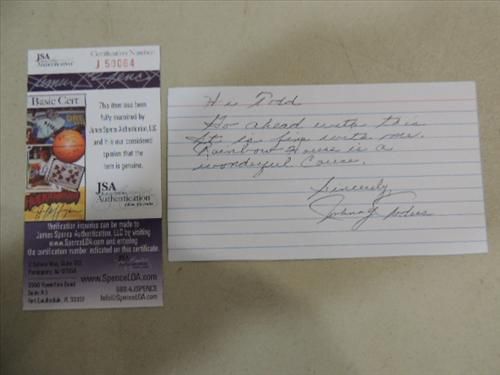 JSA
Certification Number
J 50064
Basic Cert
This item has been
fully examined by
James Spence Authentication, LLC
and it is our considered
opinion that the
item is genuine.
JSA
Authentication
Verification inquiries can be made to
James Spence Authentication, LLC by visiting
www.SpenceLOA.com and entering
the certification number indicated on this certificate.
Parsippany, NJ 07054
www.SpenceLOA.com
888-4JSPENCE
Info@SpenceLOA.com
Ft. Lauderdale, FL
Hi Todd
Go ahead with this
It is fine with me.
Rainbow House is a
wonderful Cause.
Sincerely,
Johnny